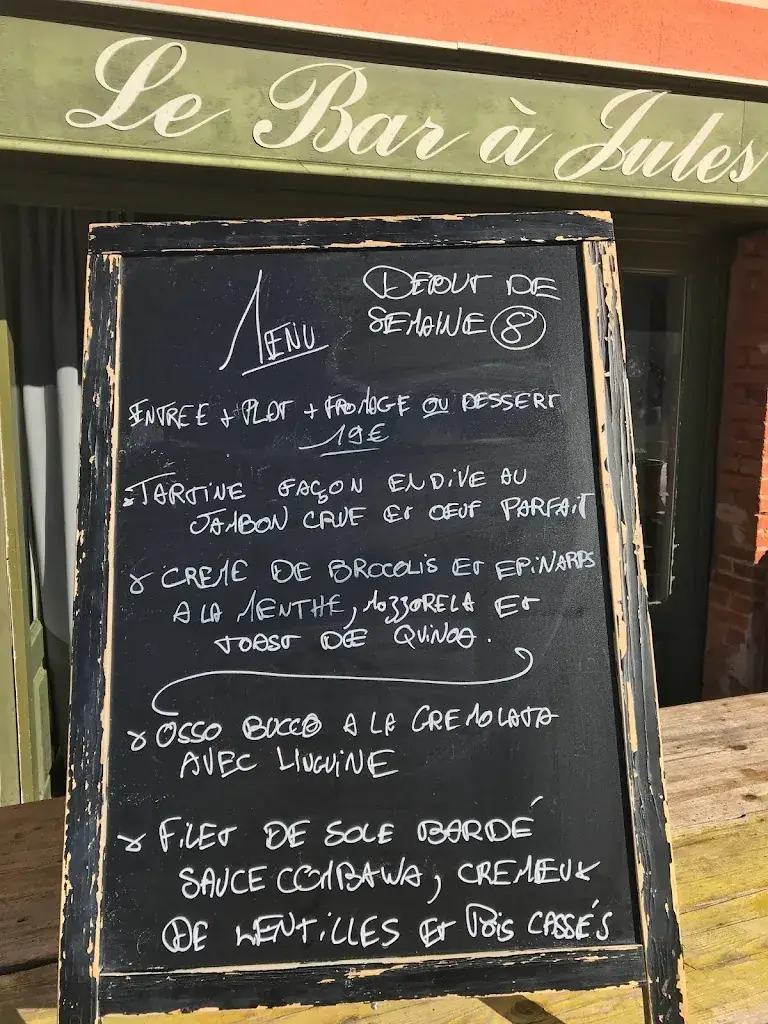 Le Bar à Jules
MENU
DEBUT DE
SEMAINE 8
ENTREE + PLAT + FROMAGE OU DESSERT
19€
TARTINE FAÇON ENDIVE AU
JAMBON CRUE ET OEUF PARFAIT
CREME DE BROCOLIS ET EPINARDS
A LA MENTHE, MOZZORELA ET
TOAST DE QUINOA.
OSSO BUCCO A LA GREMOLATA
AVEC LINGUINE
FILET DE SOLE BARDÉ
SAUCE COMBAWA, CREMEUX
DE LENTILLES ET POIS CASSÉS